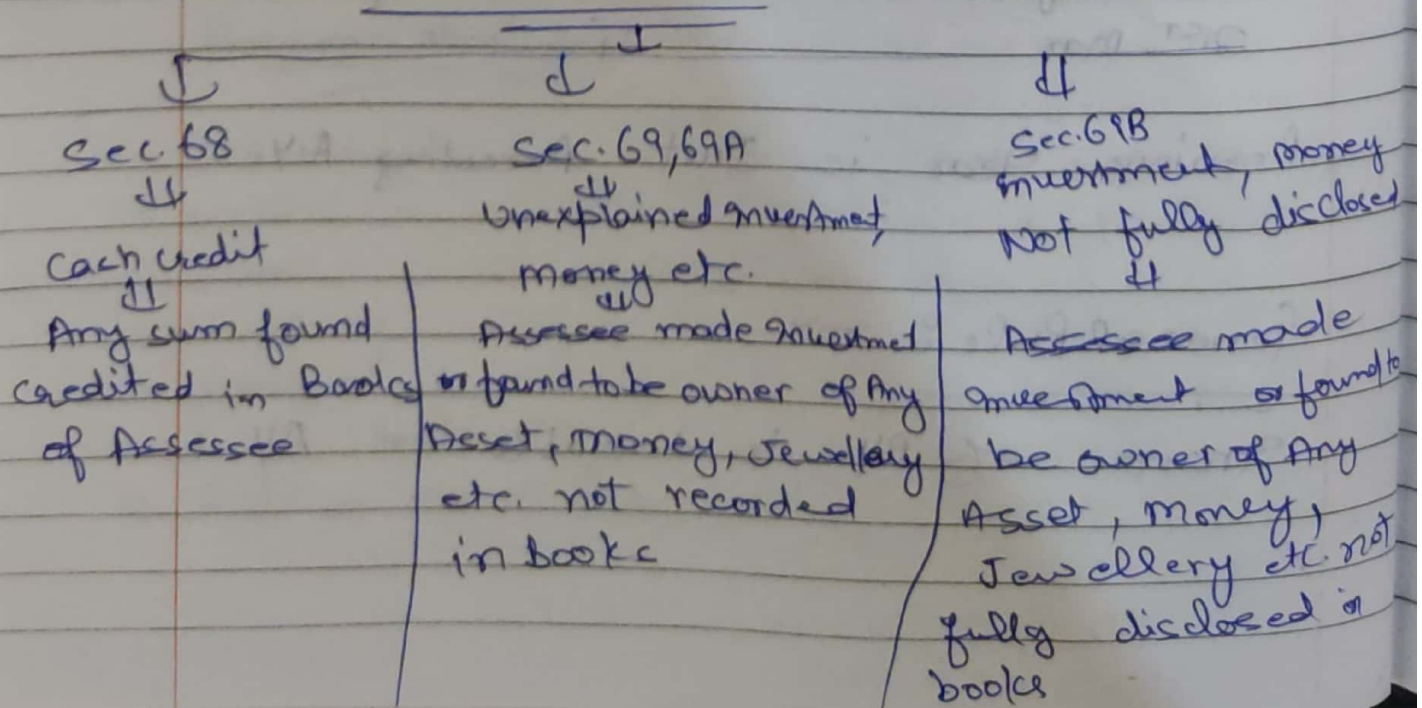 Sec. 68
Cach credit
Any sum found
credited in Books
of Assessee
Sec. 69, 69A
Unexplained Investmet,
money etc.
Assessee made Investmet
or found to be owner of Any
Asset, money, Jewellery
etc. not recorded
in books
Sec. 69B
Investment, money
Not fully disclosed
Assessee made
investment or found to
be owner of Any
Asset, money,
Jewellery etc. not
fully disclosed in
books